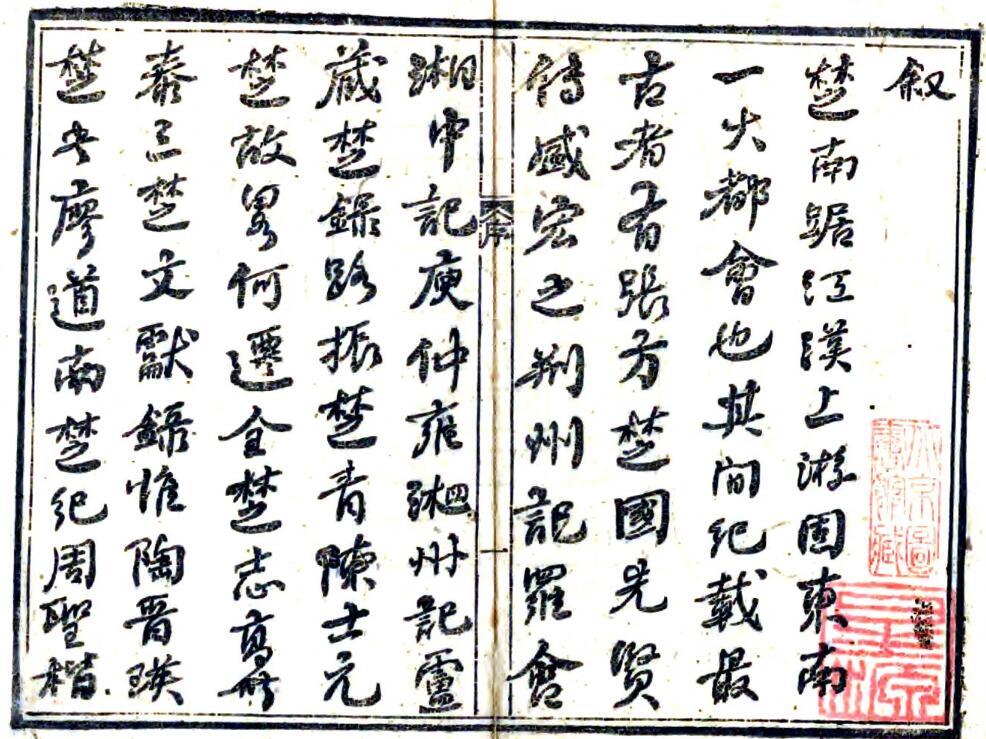 叙
楚南踞江漢上游固東南
一大都會也其間紀載最
古者有張方楚國先賢
傳盛宏之荆州記羅含
湘中記庾仲雍湘州記盧
藏楚錄路振楚青陳士元
楚故畧何遷全楚志高世
泰三楚文獻錄惟陶晋瑛
楚史廖道南楚紀周聖楷